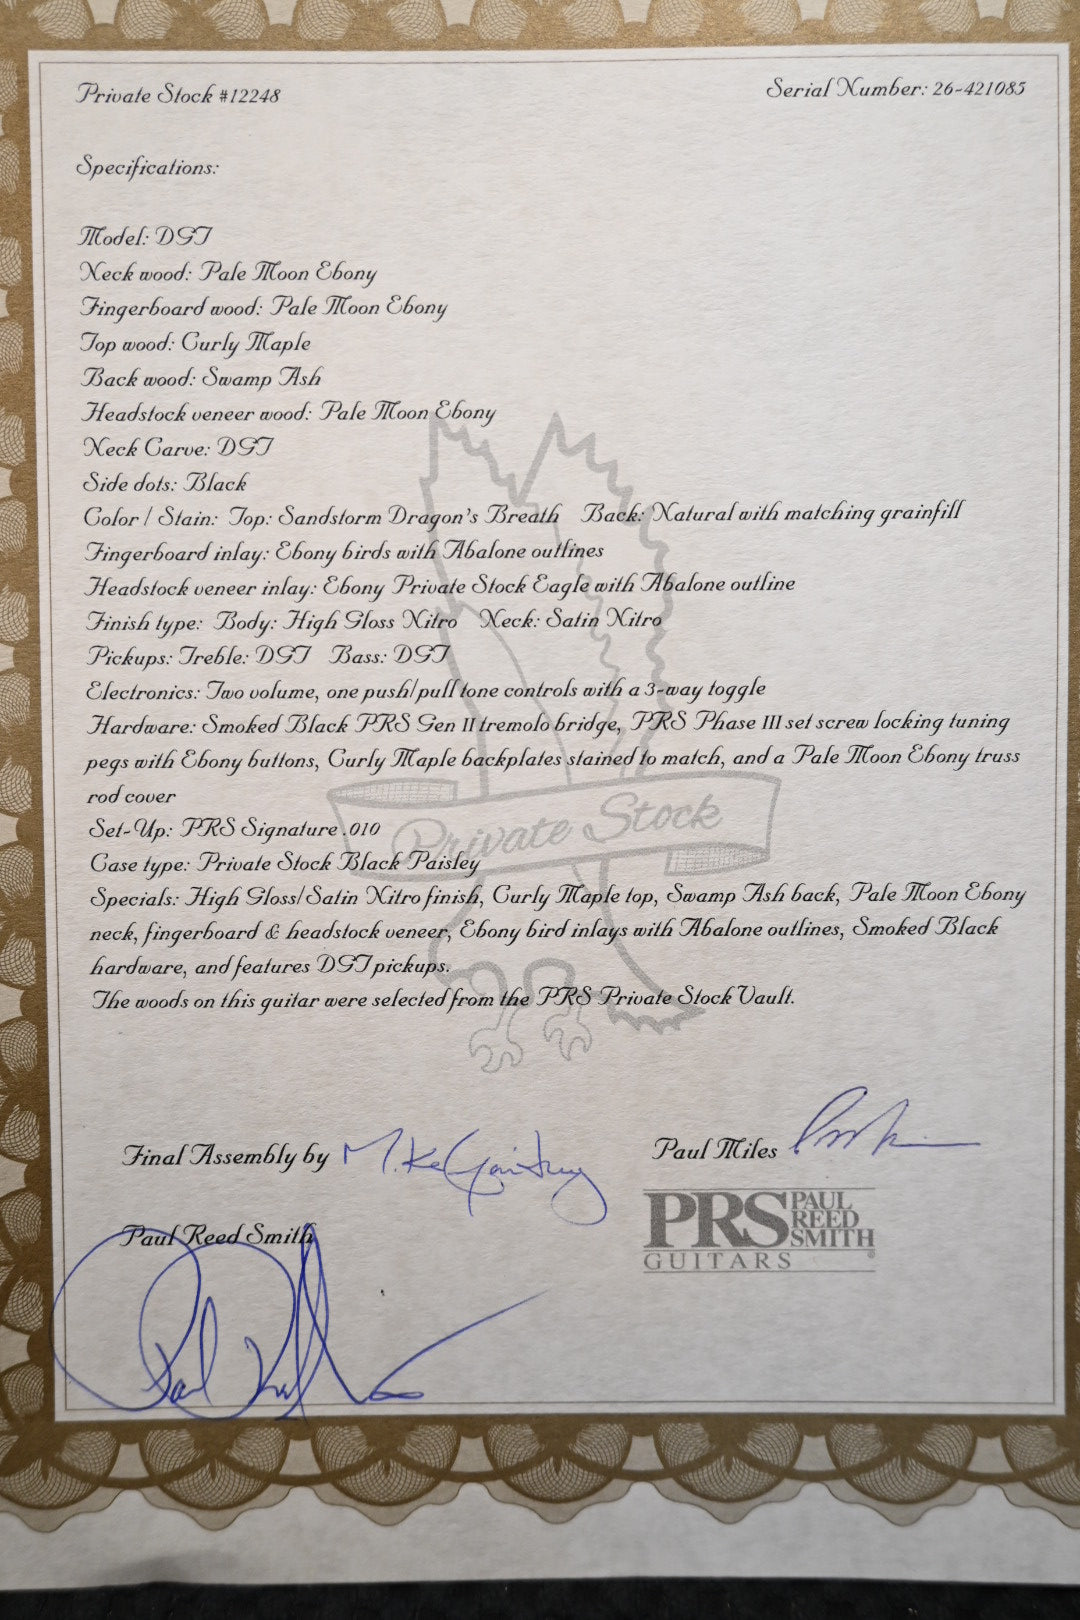 Private Stock #12248
Serial Number: 26-421085
Specifications:
Model: DGT
Neck wood: Pale Moon Ebony
Fingerboard wood: Pale Moon Ebony
Top wood: Curly Maple
Back wood: Swamp Ash
Headstock veneer wood: Pale Moon Ebony
Neck Carve: DGT
Side dots: Black
Color / Stain: Top: Sandstorm Dragon's Breath Back: Natural with matching grainfill
Fingerboard inlay: Ebony birds with Abalone outlines
Headstock veneer inlay: Ebony Private Stock Eagle with Abalone outline
Finish type: Body: High Gloss Nitro Neck: Satin Nitro
Pickups: Treble: DGT Bass: DGT
Electronics: Two volume, one push/pull tone controls with a 3-way toggle
Hardware: Smoked Black PRS Gen II tremolo bridge, PRS Phase III set screw locking tuning
pegs with Ebony buttons, Curly Maple backplates stained to match, and a Pale Moon Ebony truss
rod cover
Private Stock
Set-Up: PRS Signature .010
Case type: Private Stock Black Paisley
Specials: High Gloss/Satin Nitro finish, Curly Maple top, Swamp Ash back, Pale Moon Ebony
neck, fingerboard & headstock veneer, Ebony bird inlays with Abalone outlines, Smoked Black
hardware, and features DGT pickups.
The woods on this guitar were selected from the PRS Private Stock Vault.
Final Assembly by
Paul Miles
Paul Reed Smith
PRS PAUL REED SMITH
GUITARS